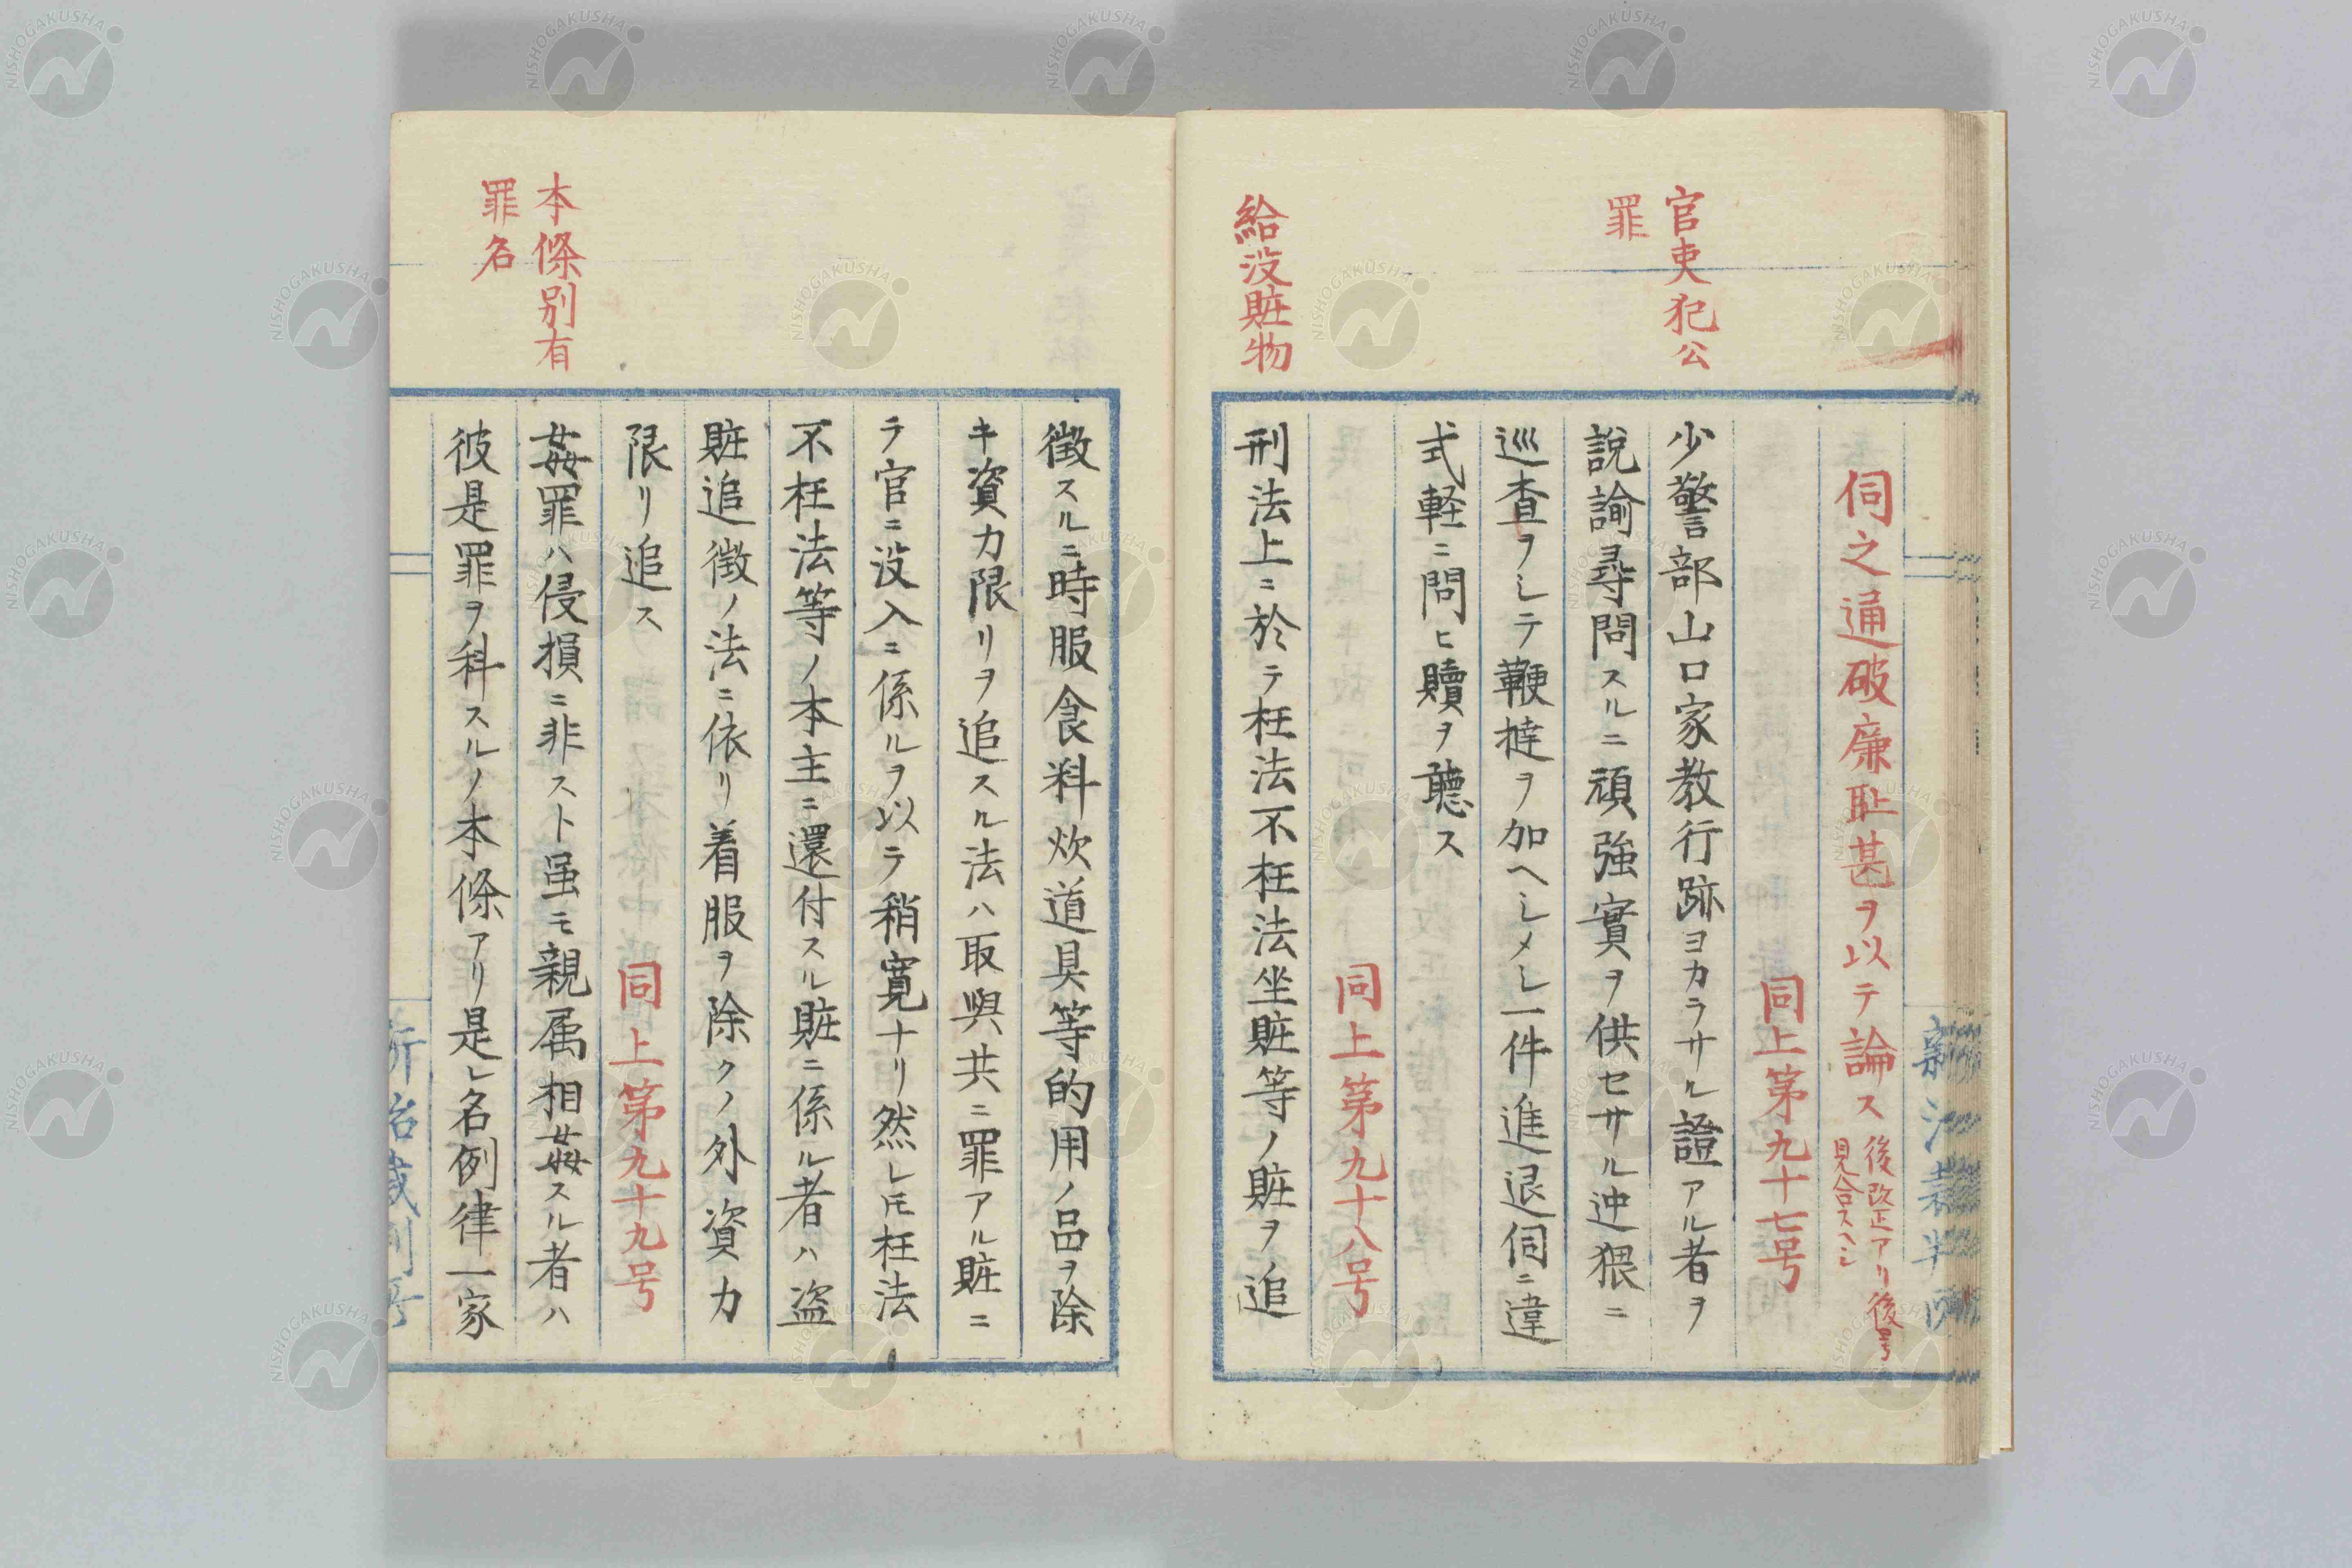 伺之通破廉耻甚ヲ以テ論ス
後改正アリ後号
見合スヘシ
同上第九十七号
官吏犯公
罪
少警部山口家教行跡ヨカラサル證アル者ヲ
説諭尋問スルニ頑強實ヲ供セサル迚猥ニ
巡査ヲシテ鞭撻ヲ加ヘシメシ一件進退伺ニ違
式軽ニ問ヒ贖ヲ聽ス
同上第九十八号
給没賍物
刑法上ニ於テ枉法不枉法坐賍等ノ賍ヲ追
徴スルニ時服食料炊道具等的用ノ品ヲ除
キ資力限リヲ追スル法ハ取與共ニ罪アル賍ニ
テ官ニ没入ニ係ルヲ以テ稍寛ナリ然レ𪜈枉法
不枉法等ノ本主ニ還付スル賍ニ係ル者ハ盗
賍追徴ノ法ニ依リ着服ヲ除クノ外資力
限リ追ス
同上第九十九号
本條別有
罪名
姦罪ハ侵損ニ非スト虽モ親属相姦スル者ハ
彼是罪ヲ科スルノ本條アリ是レ名例律一家
NISHOGAKUSHA